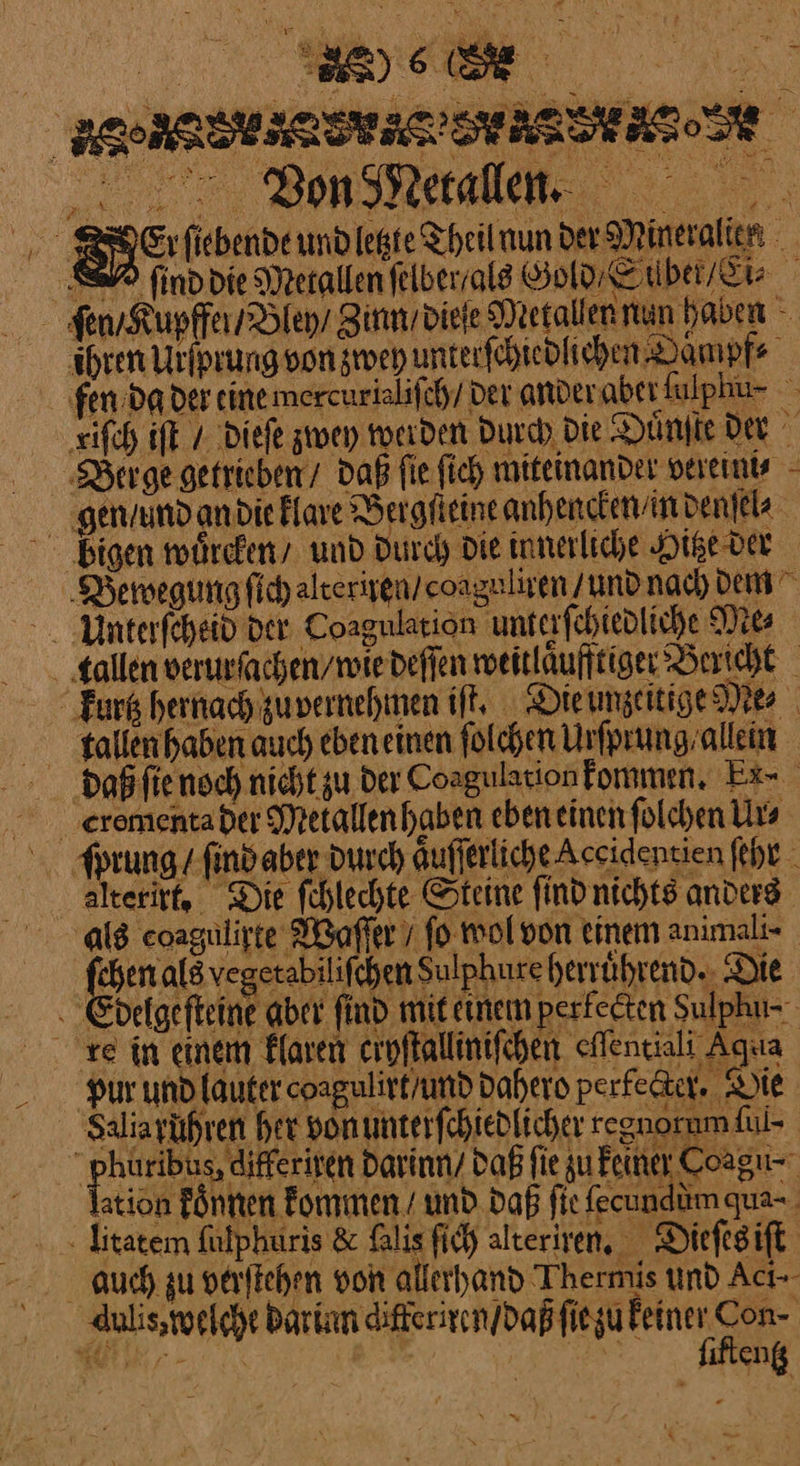 ) 6 (
Von Metallen.
DEr ſiebende und letzte Theil nun der Mineralien
ſind die Metallen ſelber/als Gold/Silber/Ei⸗
ſen/Kupffer/Bley/Zinn/dieſe Metallen nun haben
ihren Urſprung von zwey unterſchiedlichen Dämpf⸗
fen da der eine mercurialiſch/ der ander aber ſulphu-
riſch iſt / dieſe zwey werden durch die Duͤnſte der
Berge getrieben / daß ſie ſich miteinander vereini⸗
gen/und an die klare Bergſteine anhencken/in denſel⸗
bigen wuͤrcken/ und durch die innerliche Hitze der
Bewegung ſich alteriren/coaguliren/und nach dem
Unterſcheid der Coagulation unterſchiedliche Me⸗
tallen verurſachen/wie deſſen weitlaͤufftiger Bericht
kurtz hernach zu vernehmen iſt. Die unzeitige Me⸗
tallen haben auch eben einen ſolchen Urſprung/allein
daß ſie noch nicht zu der Coagulation kommen. Ex-
crementa der Metallen haben eben einen ſolchen Ur⸗
ſprung / ſind aber durch aͤuſſerliche Accidentien ſehr
alterirt. Die ſchlechte Steine ſind nichts anders
als coagulirte Waſſer / ſo wol von einem animali-
ſchen als vegetabiliſchen Sulphure herruͤhrend. Die
Edelgeſteine aber ſind mit einem perfecten Sulphu-
re in einem klaren cryſtalliniſchen eſſentiali Aqua
pur und lauter coagulirt/und dahero perfecter. Die
Salia ruͤhren her von unterſchiedlicher regnorum ſul-
phuribus, differiren darinn/ daß ſie zu keiner Coagu-
lation koͤnnen kommen / und daß ſie ſecundùm qua-
litatem ſulphuris & ſalis ſich alteriren. Dieſes iſt
auch zu verſtehen von allerhand Thermis und Aci-
dulis, welche darinn differiren/daß ſie zu keiner Con-
ſiſtentz